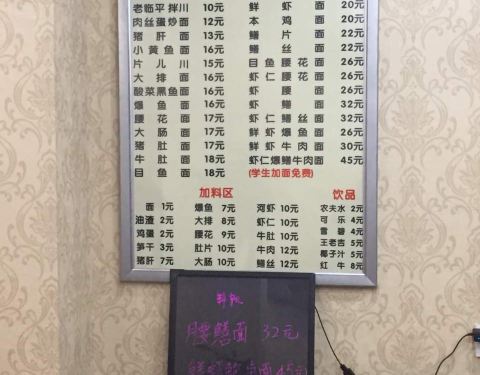 老临平拌川 10元
肉丝蛋炒面 12元
猪肝面 13元
小黄鱼面 16元
片儿川 15元
大排面 16元
酸菜黑鱼面 16元
爆鱼面 16元
腰花面 17元
大肠面 17元
猪肚面 17元
牛肚面 18元
目鱼面 18元
鲜虾面 20元
本鸡面 20元
鳝片面 22元
鳝丝面 22元
目鱼腰花面 26元
虾仁腰花面 26元
虾腰面 26元
虾鳝面 32元
虾仁鳝丝面 32元
鲜虾爆鱼面 26元
鲜虾牛肉面 30元
虾仁爆鳝牛肉面 45元
(学生加面免费)
加料区
面 1元
油渣 2元
鸡蛋 2元
笋干 3元
猪肝 7元
爆鱼 7元
大排 8元
腰花 9元
肚片 10元
大肠 10元
河虾 10元
虾仁 10元
牛肚 10元
牛肉 12元
鳝丝 12元
饮品
农夫水 2元
可乐 4元
雪碧 4元
王老吉 5元
椰子汁 5元
红牛 8元
腰鳝面 32元
面 45元